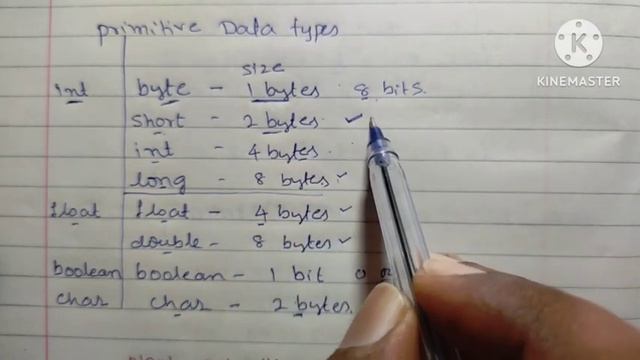 primitive Data types
size
int byte - 1 bytes 8 bits.
short - 2 bytes. ✓
int - 4 bytes.
long - 8 bytes ✓
float float - 4 bytes ✓
double - 8 bytes ✓
boolean boolean - 1 bit 0
char char - 2 bytes.
KINEMASTER